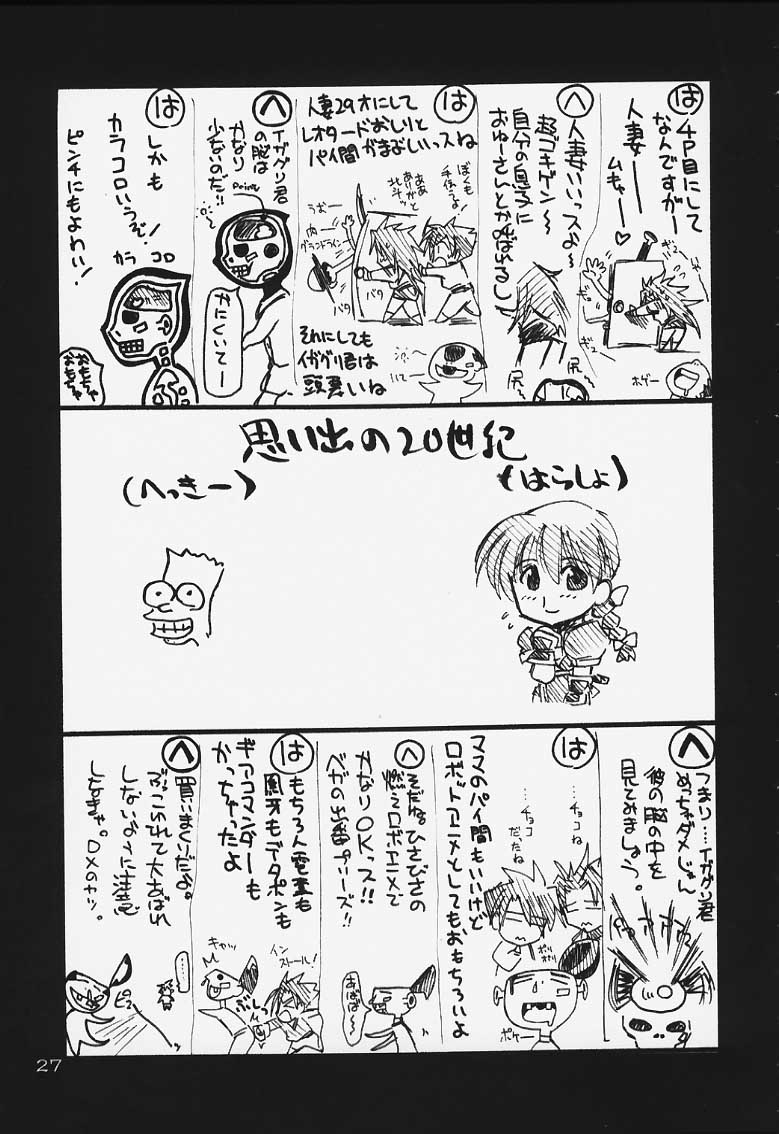 は
4P目にして
なんですがー
人妻ー
ムキャー♡
ギュ
ギュ
ホゲー
へ
人妻いいっスよ〜
超ゴキゲン〜
自分の息子に
おゅーさんとか呼ばれるし
尻
尻
は
人妻29才にして
レオタードおしりと
パイ間がまぶしいっスね
ぼくも
手伝うよ!
ああ
ありがと
北斗ッ
うおー
グランドライン
バタ
バタ
それにしても
イガグリ君は
頭悪いね
へ
イガグリ君
の脳は
かなり
少ないのだ!!
Point
かにくいてー
は
しかも
カラコロいうぞ!
カラ コロ
ピンチにもよわい!
おもちゃ
おもちゃ
思い出の20世紀
(はらしょ)
(へっきー)
へ
つまり…イガグリ君
めっちゃダメじゃん
彼の脳の中を
見てみましょう。
は
…チョコね
…チョコ
だったね
ママのパイ間もいいけど
ロボットアニメとしてもおもちろいよ
ポリ
ポリ
ポケー
へ
そだねひさびさの
燃えロボアニメで
かなりOKっス!!
ベガの出番プリーズ!!
あばば〜
は
もちろん電童も
凰牙もデータポンも
ギアコマンダーも
かっちゃったよ
キャッ
インストール!
ぶしっ
へ
買いまくりだよ。
ぶっこわれて大あばれ
しないように注意
しなきゃ。DXのヤツ。
ピュー
27